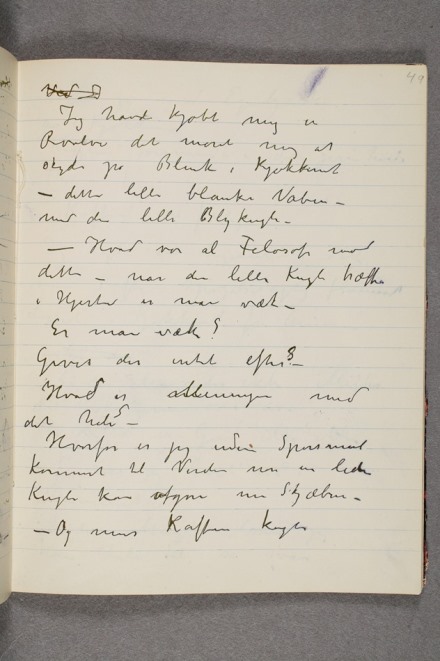 49
Ved D
Jeg havde kjøbt mig en
Revolver det moret mig at
skyde på Blink i Kjøkkenet
— dette lille blanke Vaben —
med den lille Blykugle —
— Hvad var al Filosofi mod
dette — nar den lille Kugle træffer
i Hjertet er man væk —
Er man væk?
Gives der intet efter? —
Hvad er meningen med
det hele? —
Hvorfor er jeg uden Spørsmal
kommet til Verden nu en liden
Kugle kan afgøre min Skjæbne —
— Og mens Kaffen kogte